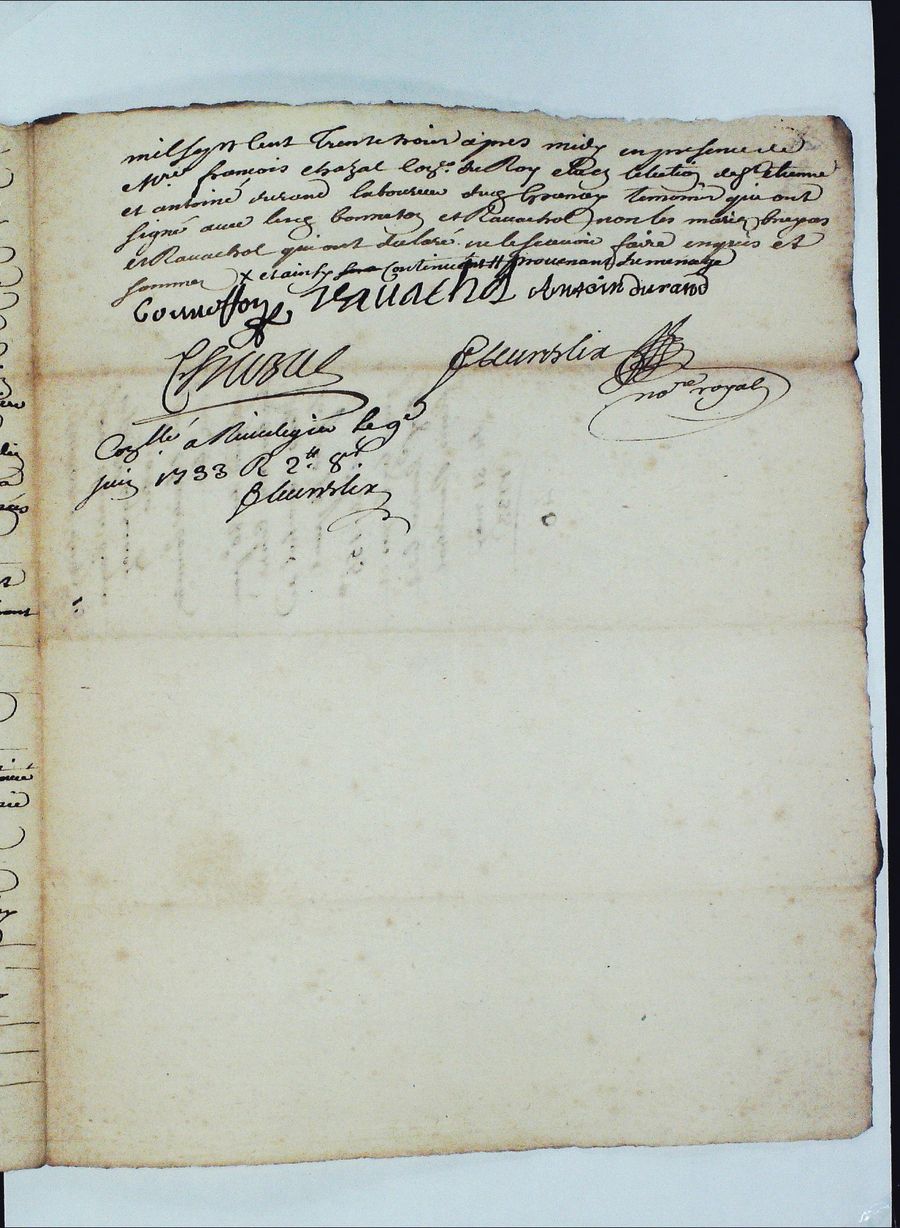 mil sept cent Trente trois apres midy en presence de
Mre françois chazal con.er du Roy en election de St etienne
et antoine durand laboureur du temoins qui ont
signé avec lesd bonnefoy et Ravachol non les mariés
et Ravachol qui ont declaré ne le scavoir faire enquis et
sommes X et ainsy continuant # provenant du menage
bonneffoy Ravachol Antoin durand
Chazal fleurdelix
no.re royal
Con.llé a le 9e
juin 1733 R 2tt 8s
fleurdelix